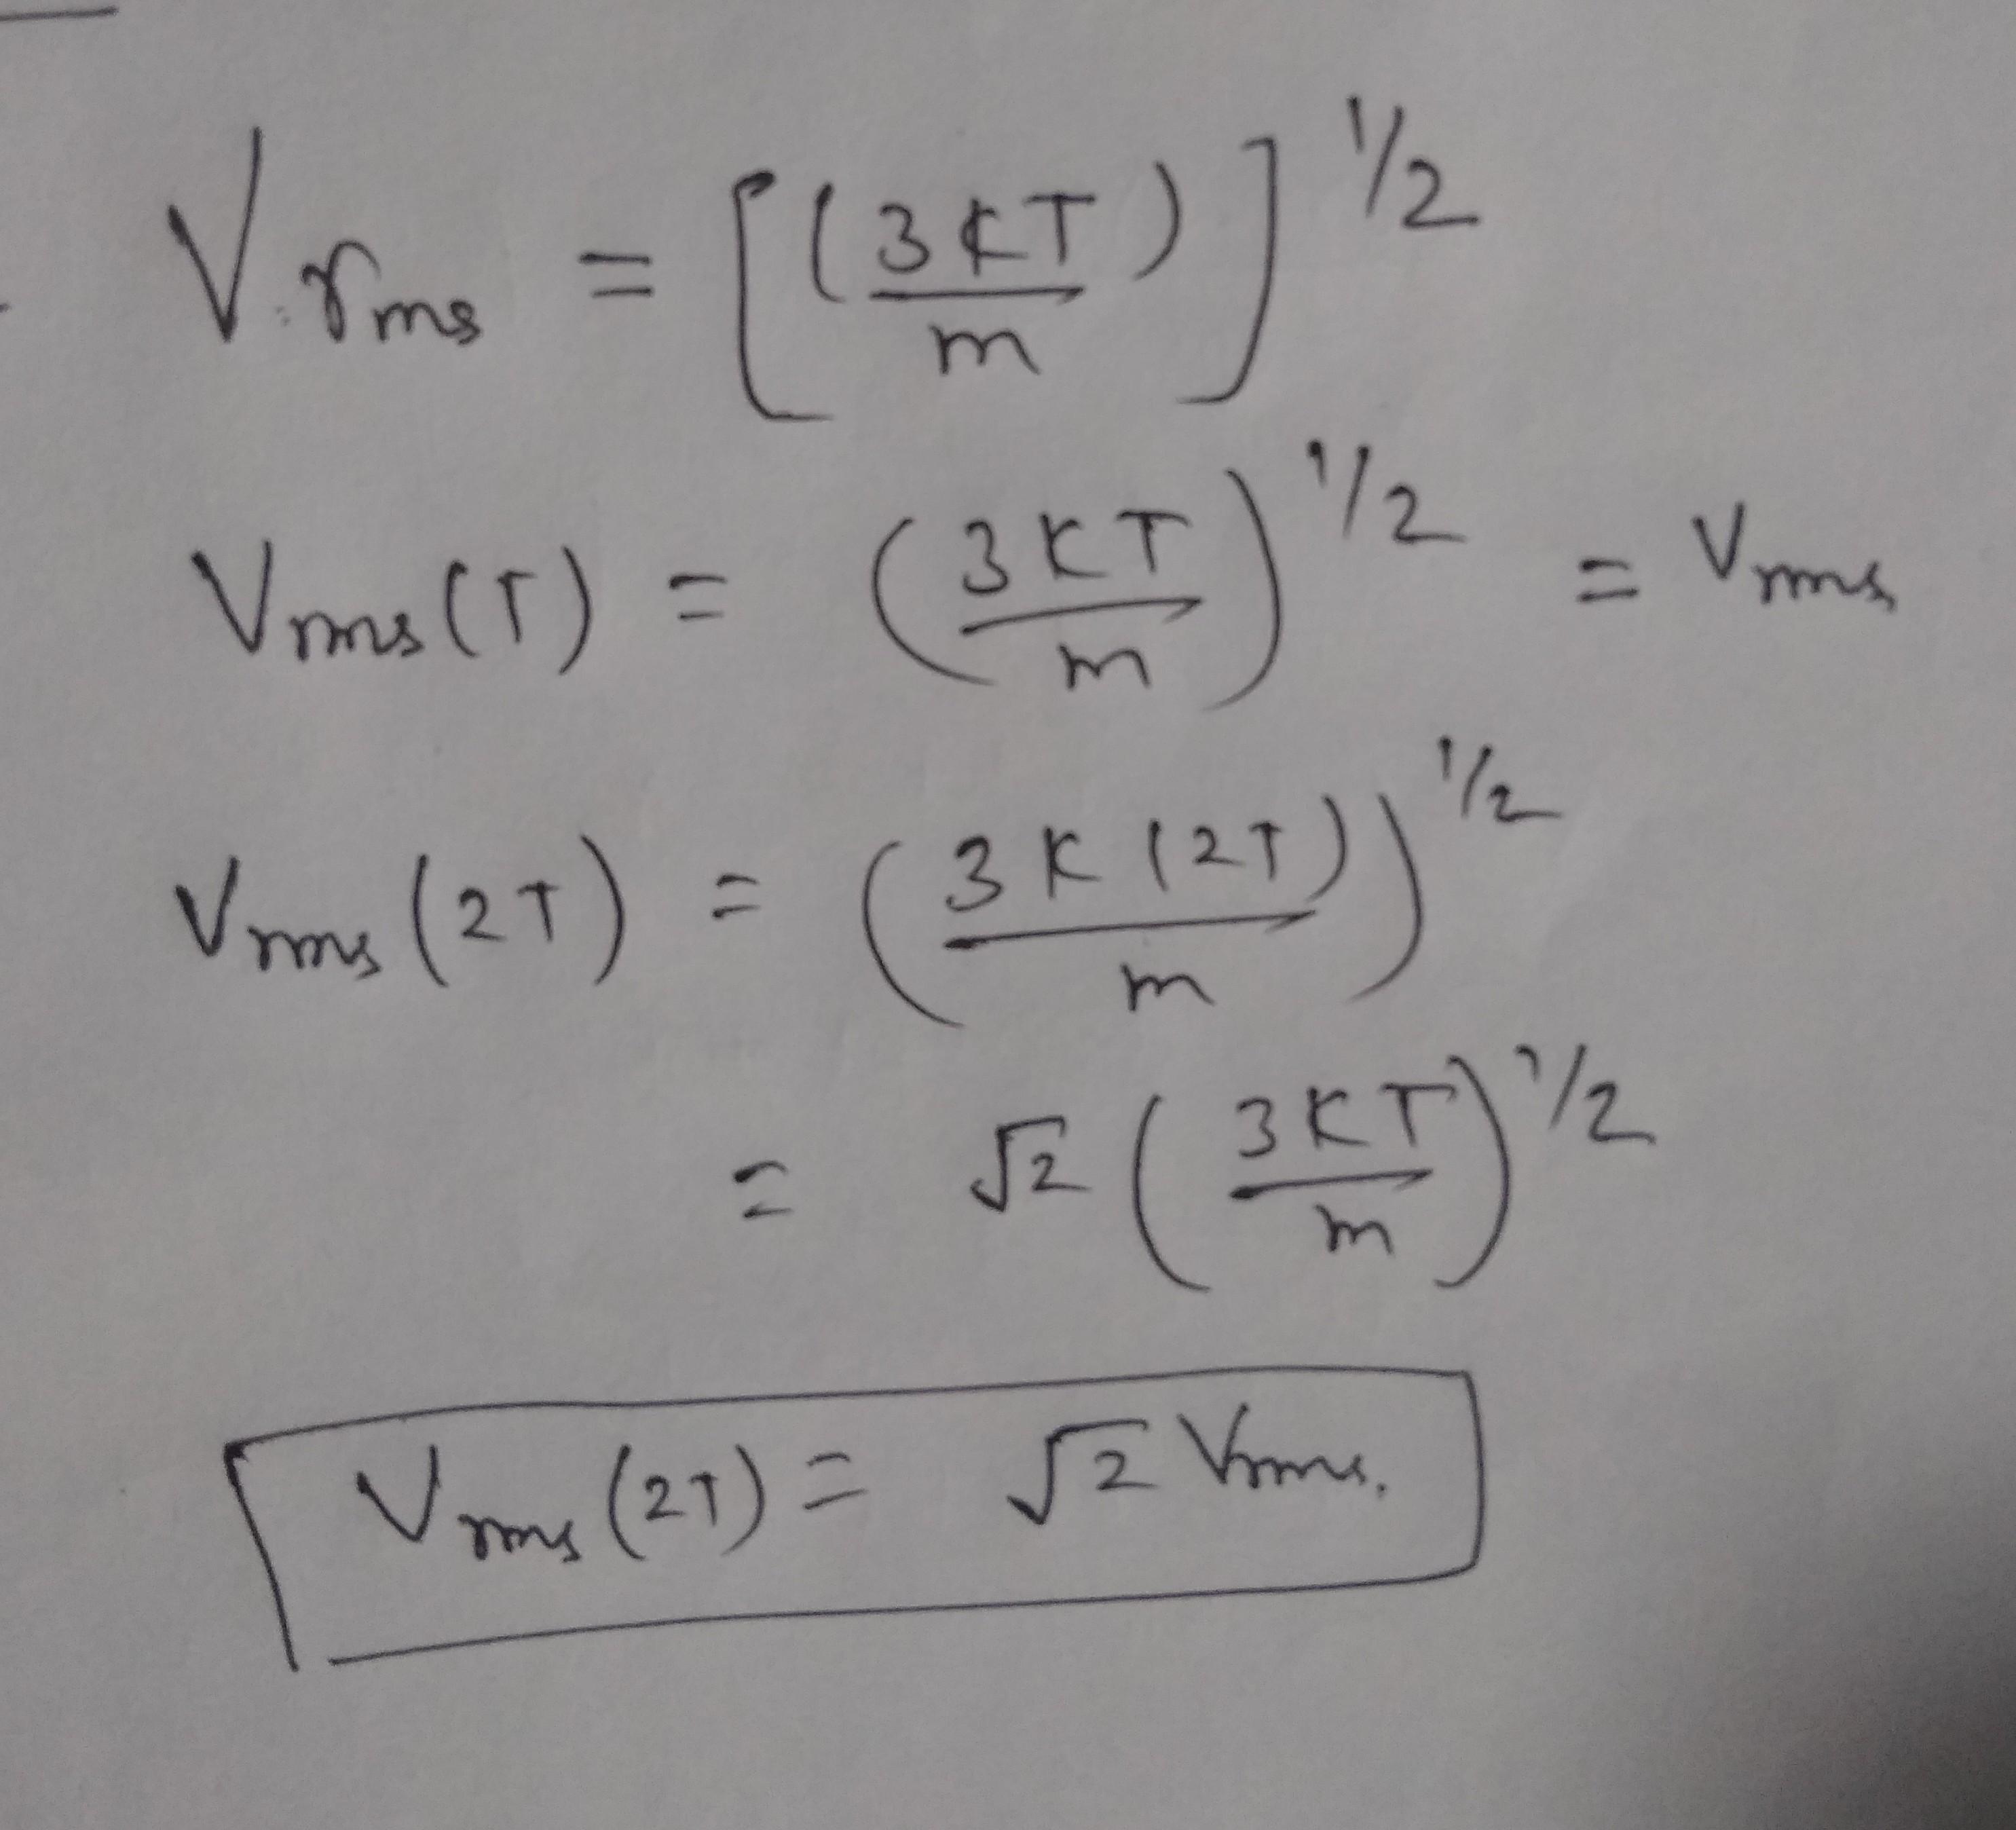 Vrms = [(3KT)/m]^1/2
Vrms(T) = (3KT/m)^1/2 = Vrms
Vrms(2T) = (3K(2T)/m)^1/2
= √2 (3KT/m)^1/2
Vrms(2T) = √2 Vrms.